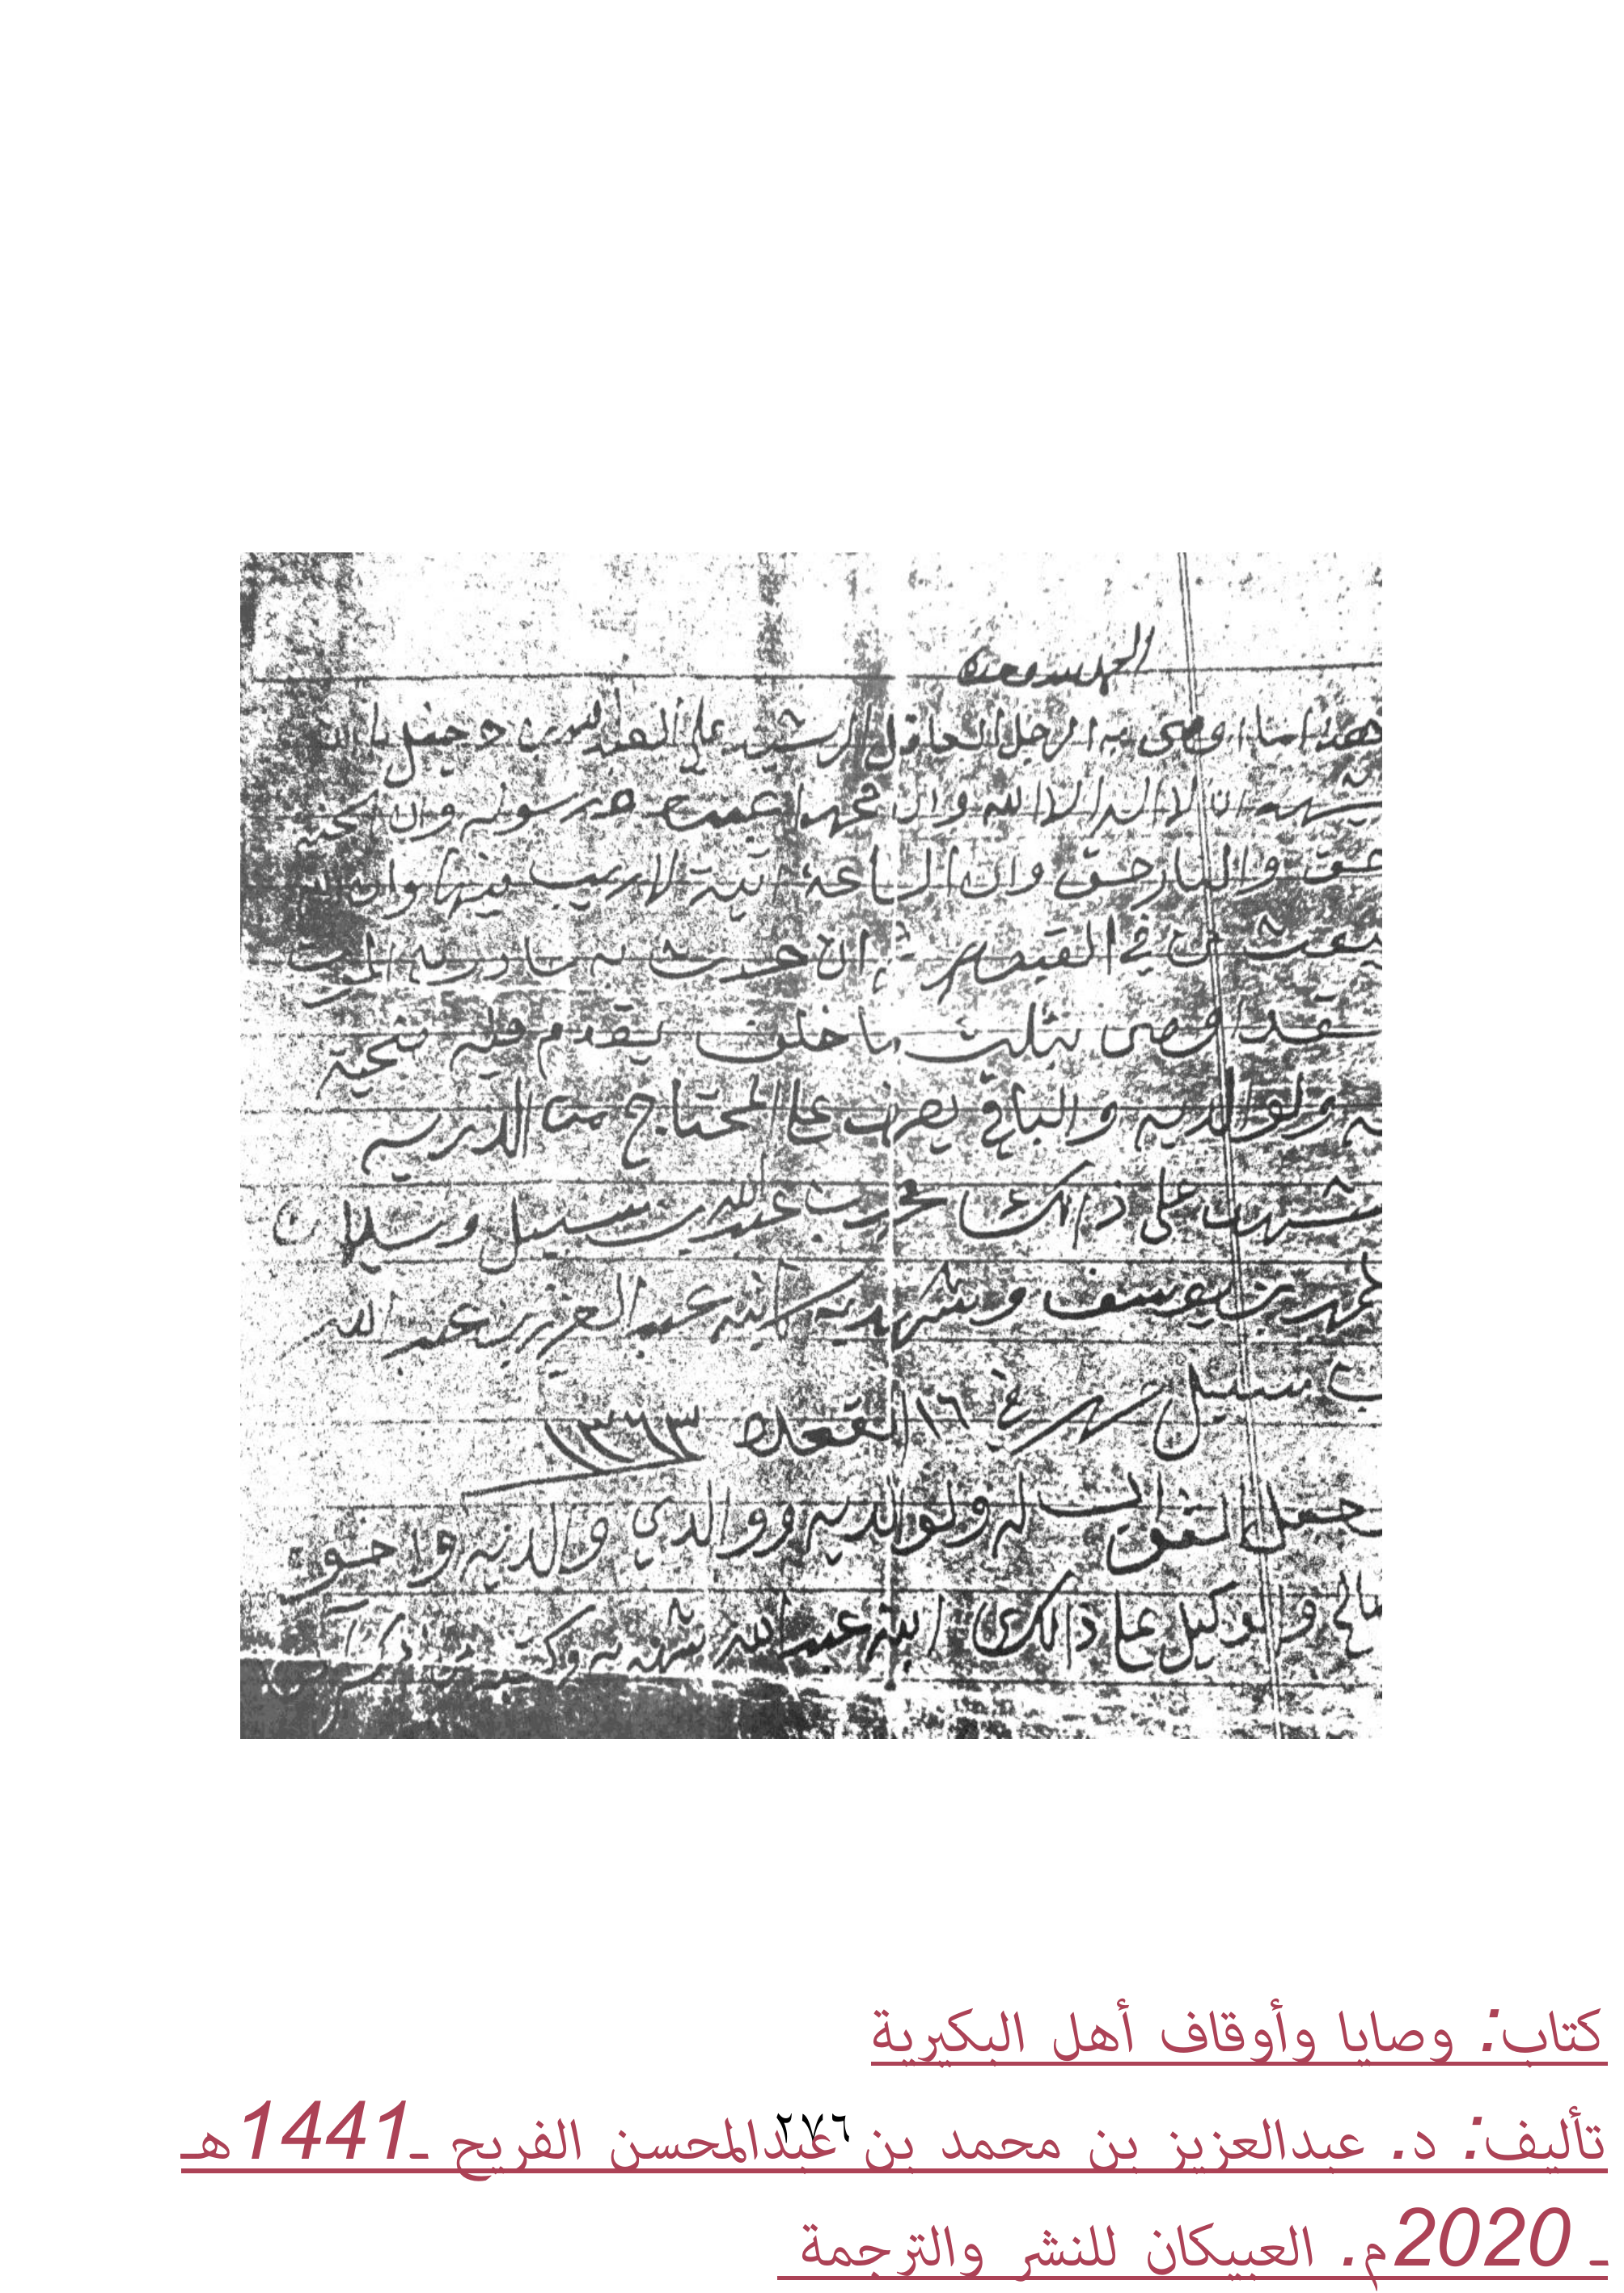 الحمد لله وحده
هذا ما اوصى به الرجل العاقل الرشيد علي
يشهد ان لا اله الا الله وان محمدا عبده ورسوله وان الجنه
حق والنار حق وان الساعة اتية لا ريب فيها وان الله
يبعث من في القبور ثم ان حدث به حادث الموت
فقد اوصى بثلث ما خلف يقدم فيه ضحية
له ولوالديه والباقي يصرف على المحتاج من الذريه
شهد على ذالك محمد بن عبد الله بن سبيل وسليمان
الحمد بن يوسف وشهد به كاتبه عبد العزيز بن عبد الله
بن سبيل حرر في ١٦ القعده ١٣٦٣
الثواب له ولوالديه ووالدي والديه واخوه
صالح والوكيل على ذالك ابنه عبد الله شهد به وكتبه
كتاب: وصايا وأوقاف أهل البكيرية
٢٧٦
تأليف: د. عبدالعزيز بن محمد بن عبدالمحسن الفريح ـ1441هـ
ـ 2020م. العبيكان للنشر والترجمة